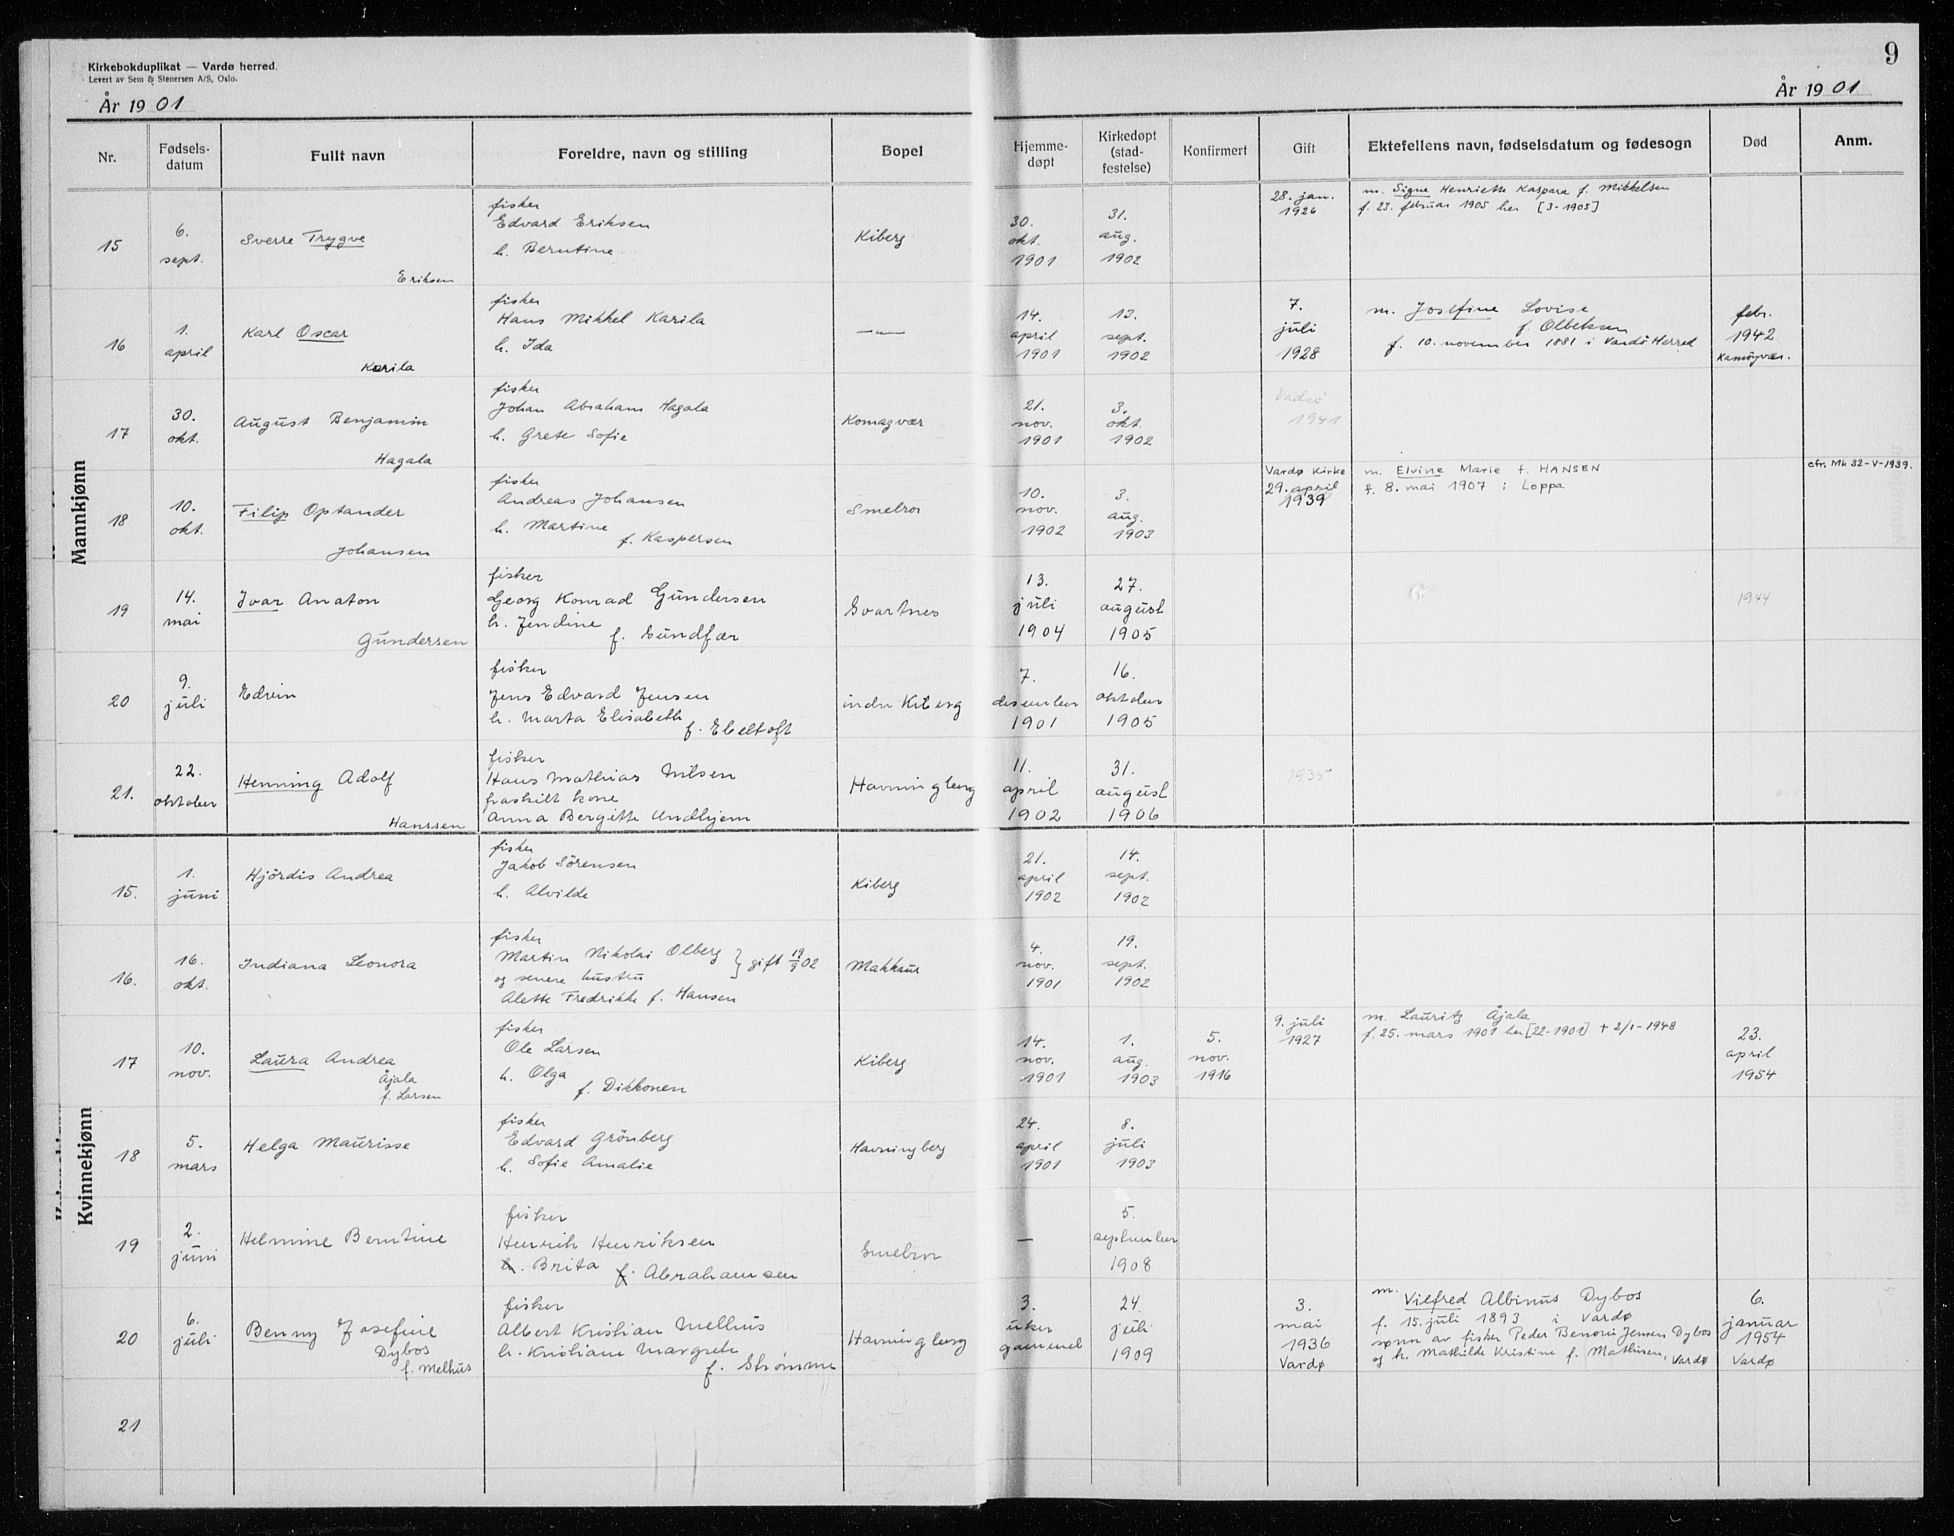 Kirkebokduplikat — Vardø herred.
Levert av Sem & Stenersen A/S, Oslo.
9
År 1901
År 1901
Nr. Fødselsdatum Fullt navn Foreldre, navn og stilling Bopel Hjemmedøpt Kirkedøpt (stadfestelse) Konfirmert Gift Ektefellens navn, fødselsdatum og fødesogn Død Anm.
Mannkjønn
15
6.
sept.
Sverre Trygve
Eriksen
fisker
Edvard Eriksen
h. Berntine
Kiberg
30.
okt.
1901
31.
aug.
1902
28. jan.
1926
m. Signe Henriette Kaspara f. Mikkelsen
f. 23. februar 1905 her [3-1905]
16
1.
april
Karl Oscar
Karila
fisker
Hans Mikkel Karila
h. Ida
—〃—
14.
april
1901
13.
sept.
1902
7.
juli
1928
m. Josefine Lovise
f. Olbeksen
f. 10. november 1881 i Vardø Herred
febr.
1942
Kamøyvær.
17
30.
okt.
August Benjamin
Hagala
fisker
Johan Abraham Hagala
h. Grete Sofie
Komagvær
21.
nov.
1901
3.
okt.
1902
Vadsø
1941
18
10.
okt.
Filip Optander
Johansen
fisker
Andreas Johansen
h. Martine
f. Kaspersen
Smelror
10.
nov.
1902
3.
aug.
1903
Vardø Kirke
29. april
1939
m. Elvine Marie f. HANSEN
f. 8. mai 1907 i Loppa
cfr. Mk 32-V-1939.
19
14.
mai
Ivar Anaton
Gundersen
fisker
Georg Konrad Gundersen
h. Jendine
f. Sundfær
Svartnes
13.
juli
1904
27.
august
1905
1944
20
9.
juli
Edvin
fisker
Jens Edvard Jensen
h. Marta Elisabeth
f. Ebeltoft
indre Kiberg
7.
desember
1901
16.
oktober
1905
21.
22.
oktober
Henning Adolf
Hanssen
fisker
Hans Mathias Nilsen
fraskilt kone
Anna Bergitte Undhjem
Havningberg
11.
april
1902
31.
august
1906
1935
Kvinnekjønn
15.
1.
juni
Hjördis Andrea
fisker
Jakob Sörensen
h. Alvilde
Kiberg
21.
april
1902
14.
sept.
1902
16.
16.
okt.
Indiana Leonora
fisker
Martin Nikolai Olberg } gift 19/9 02
og senere hustru
Alette Fredrikke f. Hansen
Makkaur
4.
nov.
1901
19.
sept.
1902
17
10.
nov.
Laura Andrea
Åjala
f. Larsen
fisker
Ole Larsen
h. Olga
f. Dikkonen
Kiberg
14.
nov.
1901
1.
aug.
1903
5.
nov.
1916
9. juli
1927
m. Lauritz Åjala
f. 25. mars 1901 her [22-1901] + 2/1-1948
23.
april
1954
18
5.
mars
Helga Maurisse
fisker
Edvard Grönberg
h. Sofie Amalie
Havningberg
24.
april
1901
8.
juli
1903
19
2.
juni
Helmine Berntine
fisker
Henrik Henriksen
h. Brita f. Abrahamsen
Smelror
—
5.
september
1908
20
6.
juli
Benny Josefine
Dybos
f. Melhus
fisker
Albert Kristian Melhus
h. Kristiane Margrete
f. Strømme
Havningberg
3.
uker
gammel
24.
juli
1909
3.
mai
1936
Vardø
m.
Vilfred Albinus Dybos
f. 15. juli 1893 i Vardø
sønn av fisker Peder Benoni Jensen Dybos
og h. Mathilde Kristine f. Mathisen, Vardø
6.
januar
1954
Vardø
21